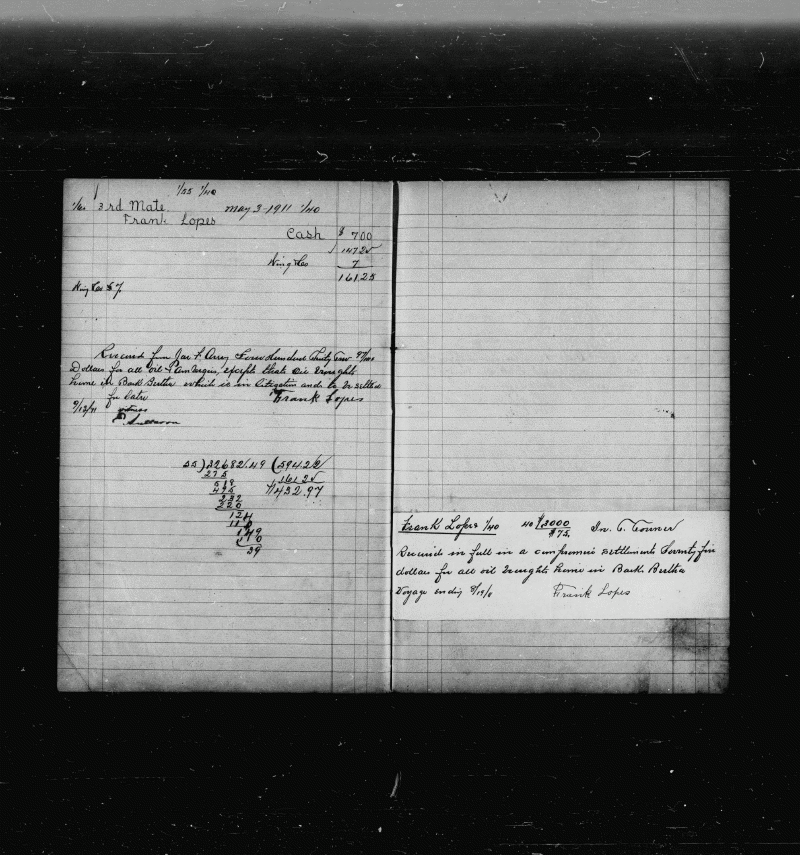 1/55 1/40
1/60 3rd Mate May 3-1911 1/40
Frank Lopes
Cash $ 700
147 25
7
161 25
$7
Received from Jas F. Avery Four Hundred Thirty Two 97/100
Dollars for all oil & Ambergris, except that oil brought
home in Bark Bertha which is in litigation and to be settled
for later Frank Lopes
9/13/11 witness
55)32682.49(594 22
275 161 25
518 $432.97
495
232
220
124
110
149
110
39
Frank Lopes 1/40 40 $3000
$75.
Received in full in a compromise settlement Seventy five
dollars for all oil brought home in Bark Bertha
Voyage ending Frank Lopes